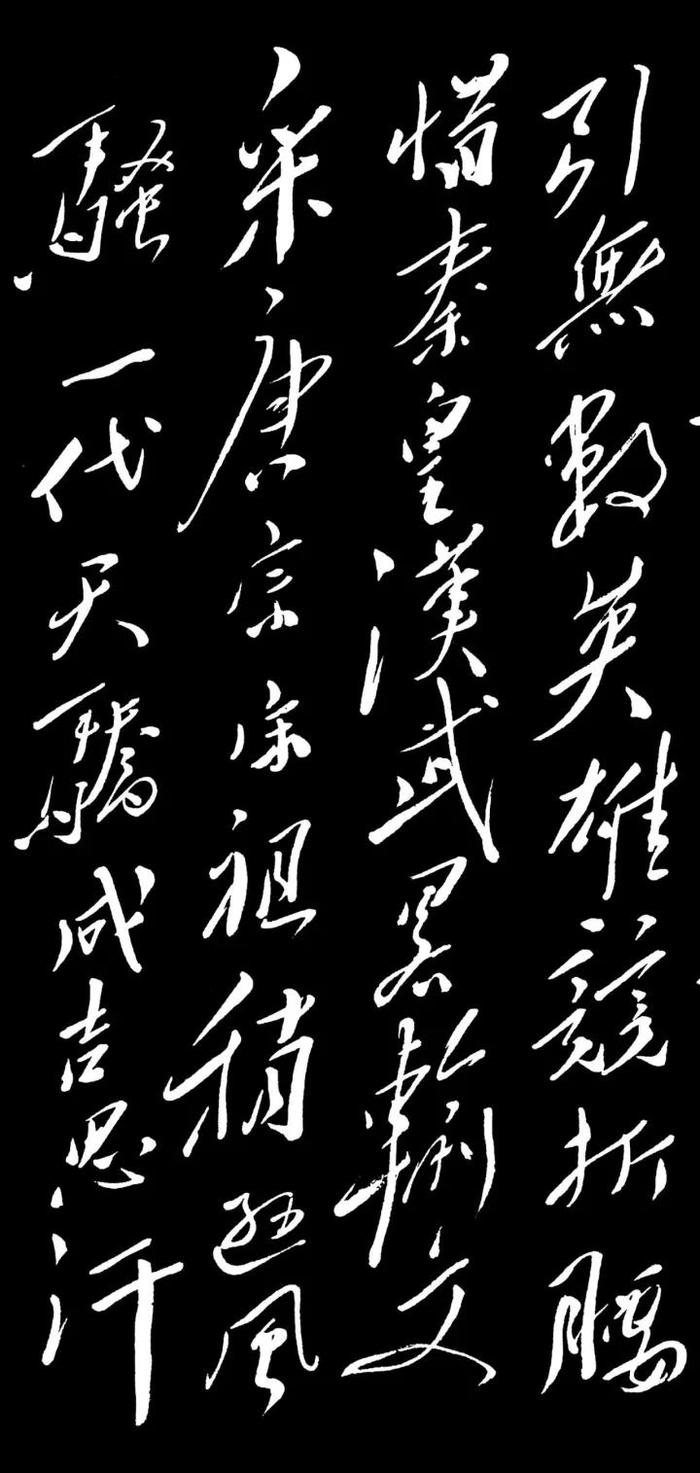 引無數英雄競折腰
惜秦皇漢武畧輸文
采唐宗宋祖稍遜風
騷一代天驕成吉思汗